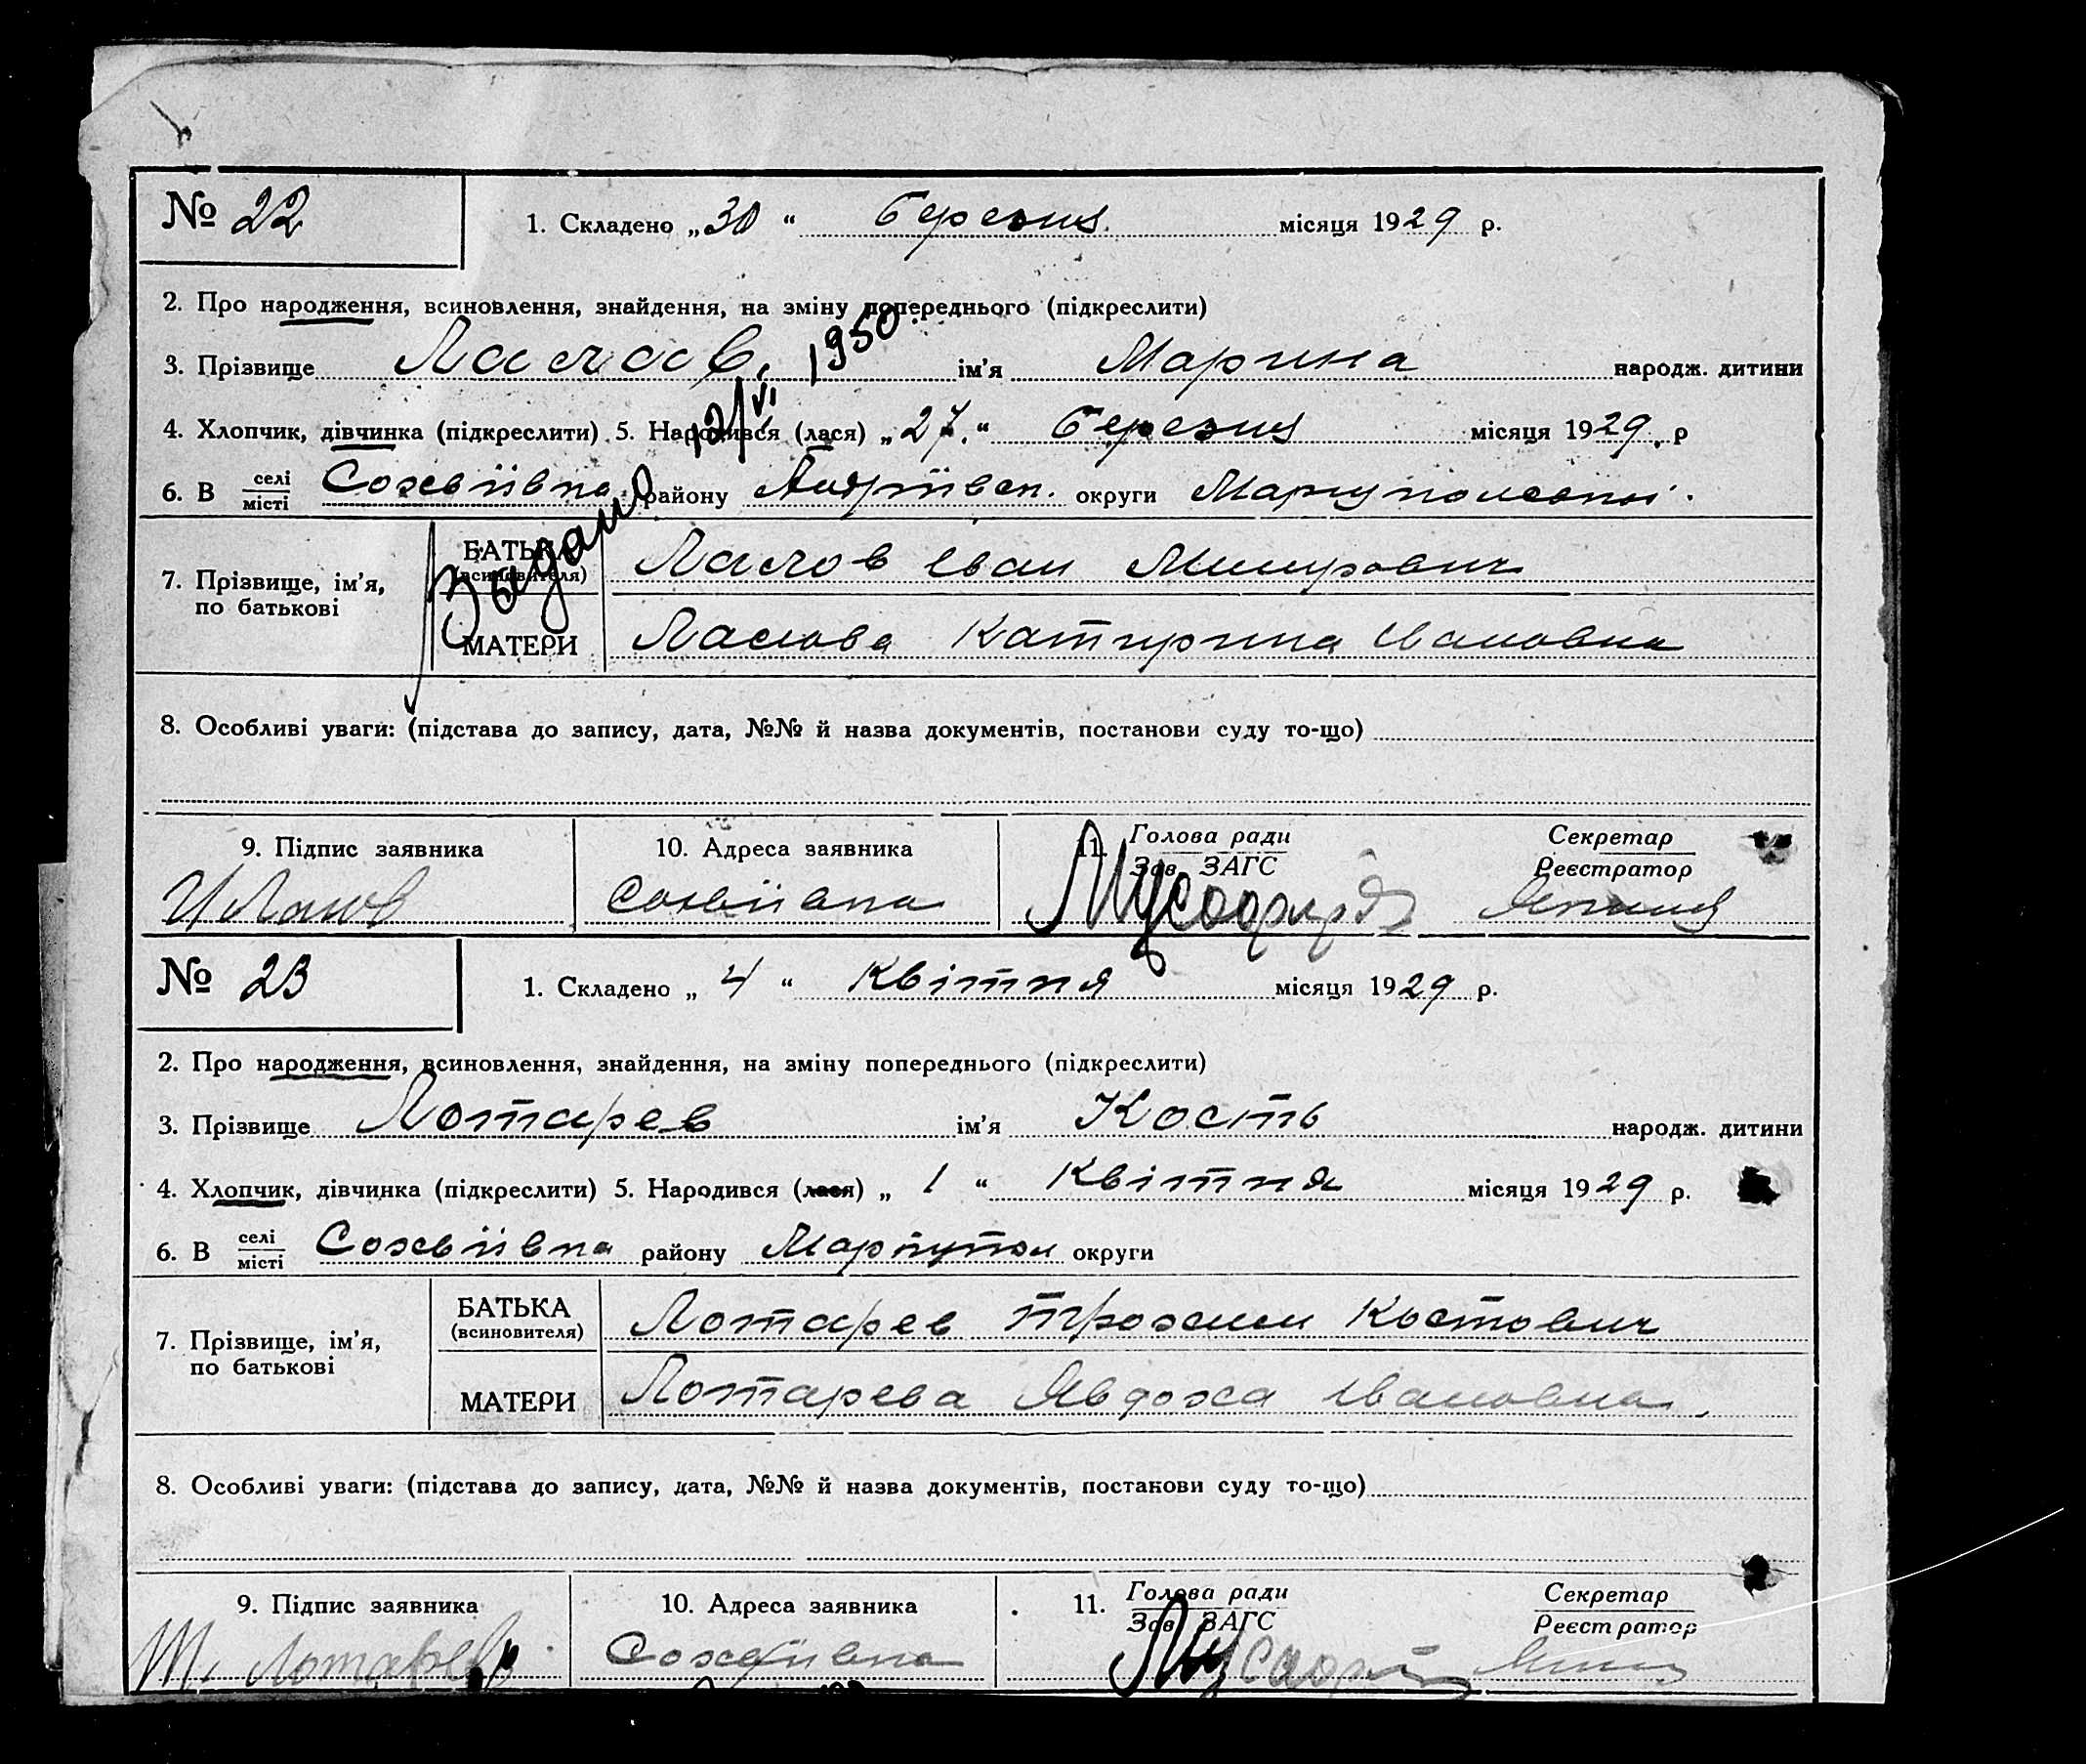 № 22
1. Складено „30“ березня місяця 1929 р.
2. Про народження, всиновлення, знайдення, на зміну попереднього (підкреслити)
3. Прізвище ім'я Марина народж. дитини
4. Хлопчик, дівчинка (підкреслити) 5. Народився (лася) „27.“ березня місяця 1929 р
6. В селі/місті району округи
12/VI 1950
7. Прізвище, ім'я, по батькові
БАТЬКА (всиновителя) Лалов Іван
МАТЕРИ Івановна
8. Особливі уваги: (підстава до запису, дата, №№ й назва документів, постанови суду то-що)
9. Підпис заявника 10. Адреса заявника 11. Голова ради Секретар
Зав. ЗАГС Реєстратор
№ 23
1. Складено „4“ Квітня місяця 1929 р.
2. Про народження, всиновлення, знайдення, на зміну попереднього (підкреслити)
3. Прізвище Лотарев ім'я Кость народж. дитини
4. Хлопчик, дівчинка (підкреслити) 5. Народився (лася) „1“ Квітня місяця 1929 р.
6. В селі/місті району округи
7. Прізвище, ім'я, по батькові
БАТЬКА (всиновителя) Лотарев Трохим Костович
МАТЕРИ Лотарева Явдоха Івановна.
8. Особливі уваги: (підстава до запису, дата, №№ й назва документів, постанови суду то-що)
9. Підпис заявника 10. Адреса заявника 11. Голова ради Секретар
Зав. ЗАГС Реєстратор
Т. Лотарев